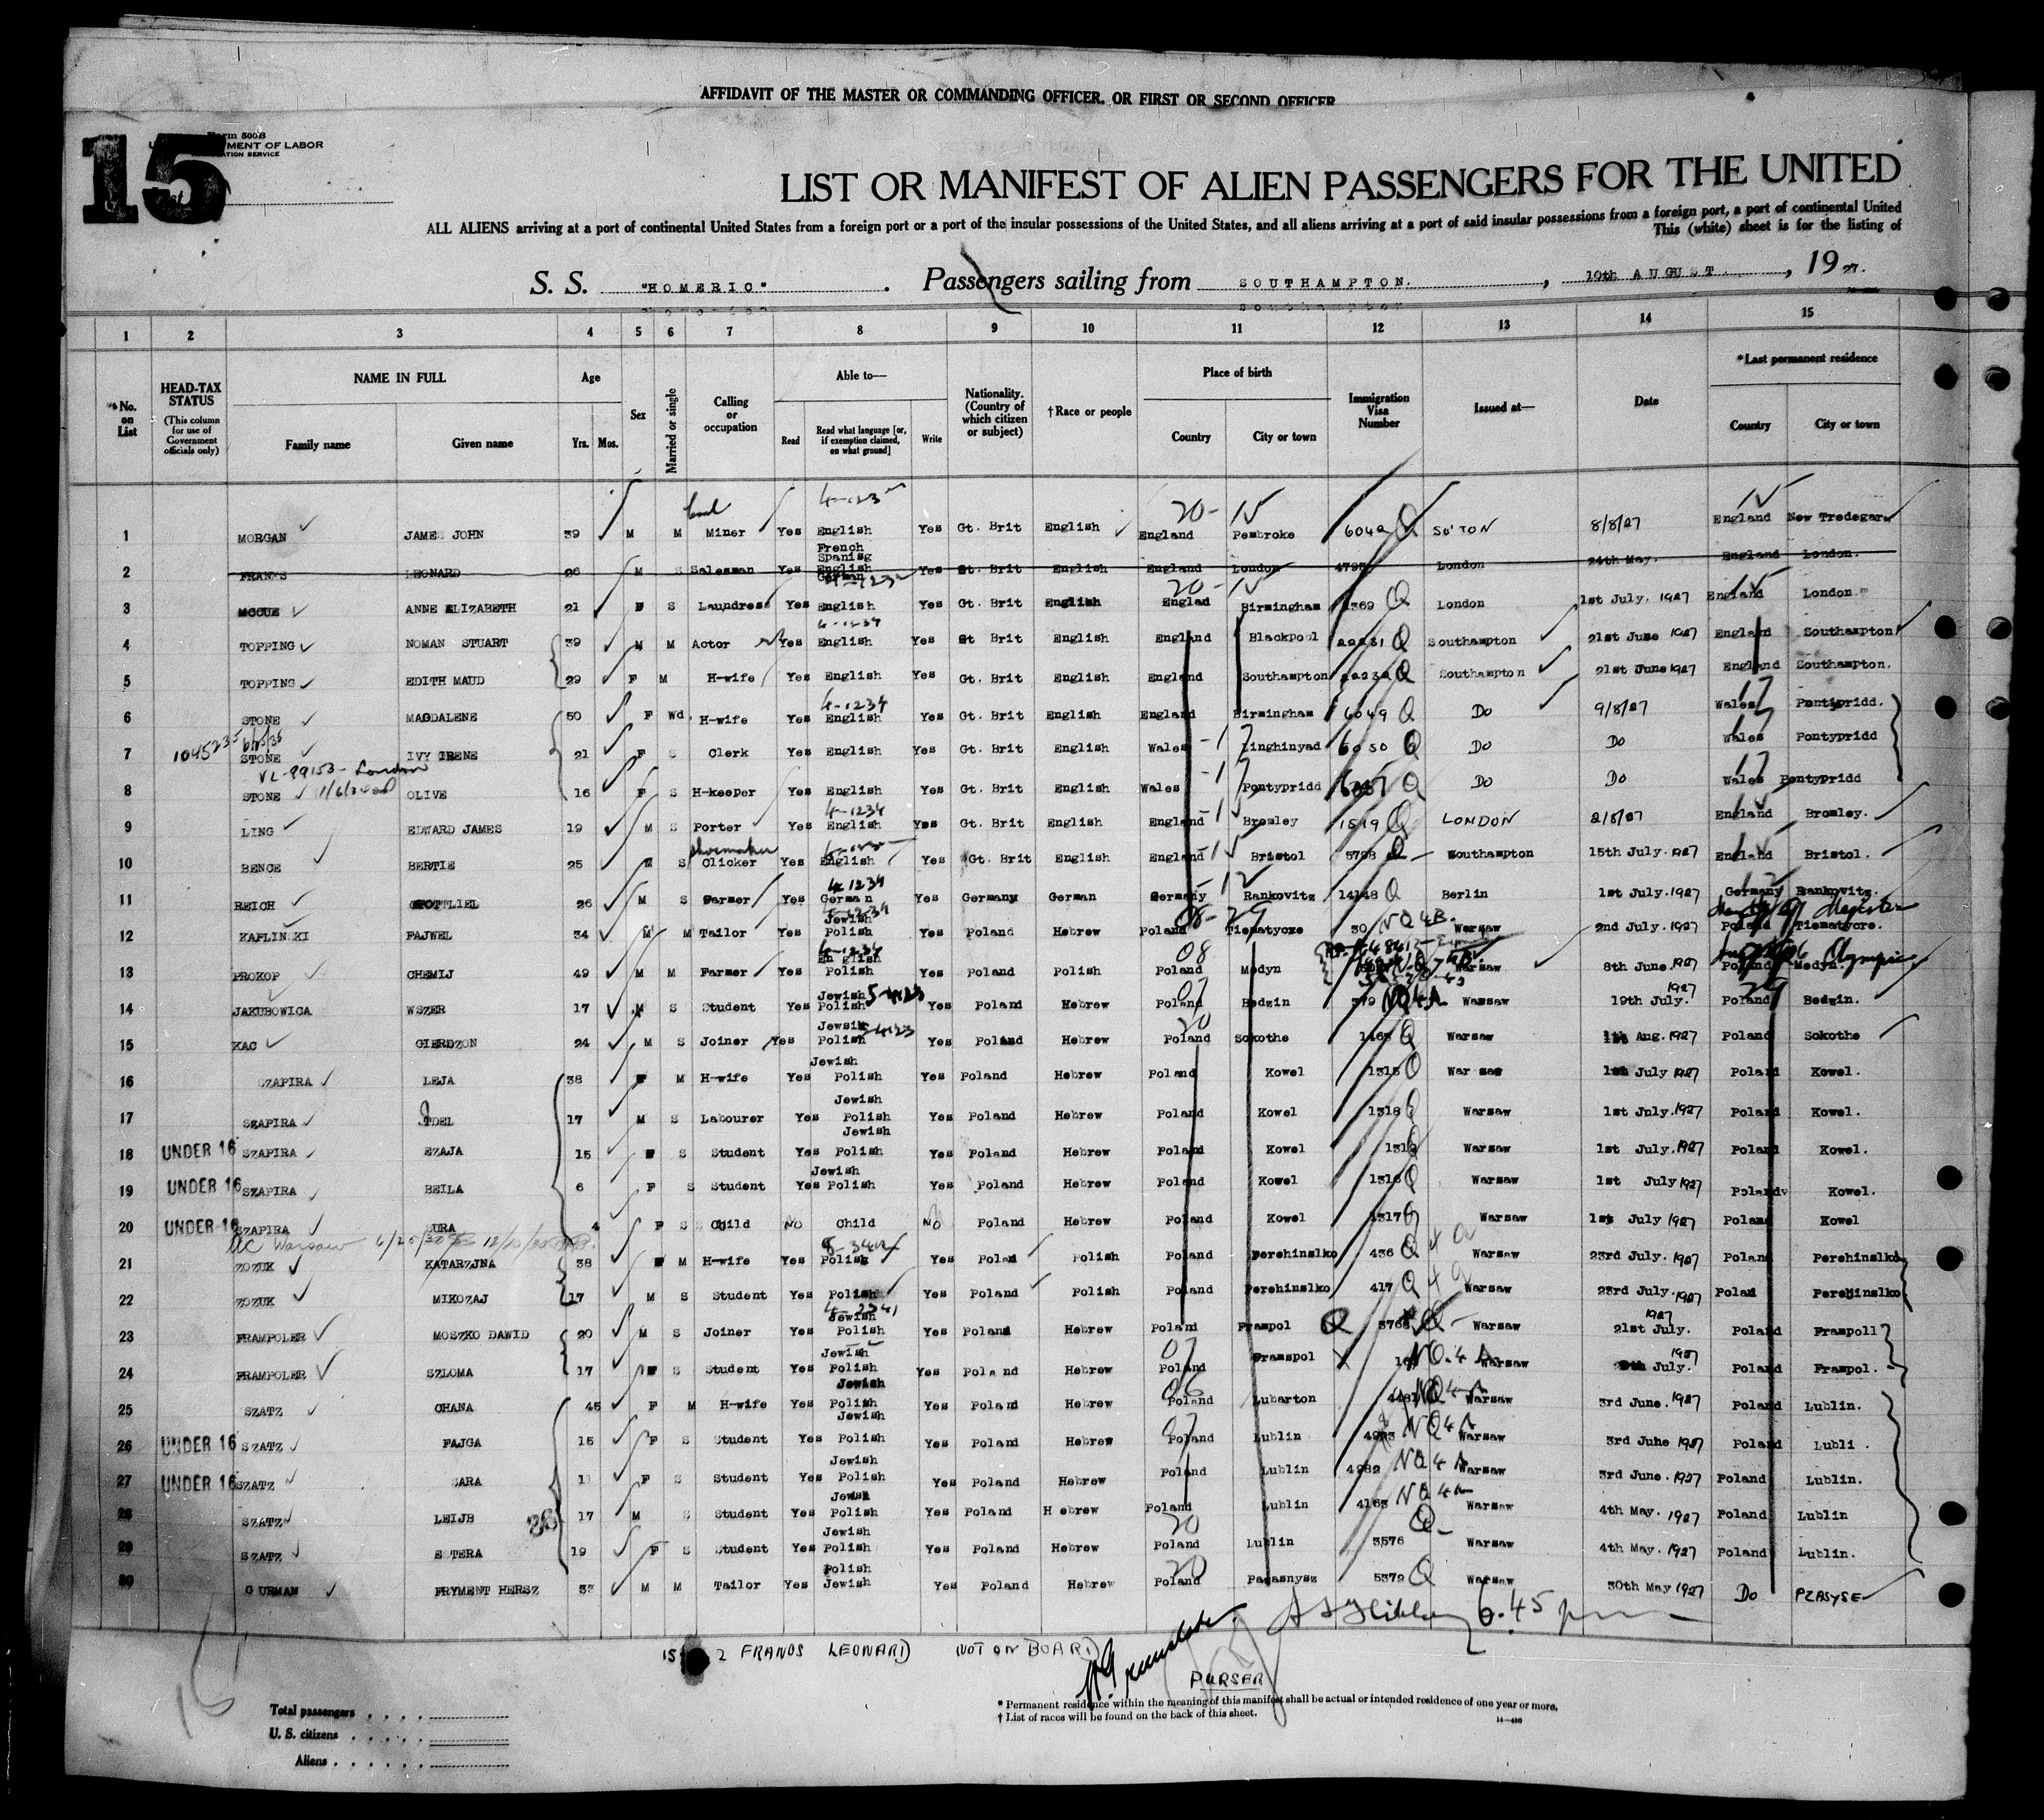 AFFIDAVIT OF THE MASTER OR COMMANDING OFFICER, OR FIRST OR SECOND OFFICER
15
Form 500B
MENT OF LABOR
ATION SERVICE
LIST OR MANIFEST OF ALIEN PASSENGERS FOR THE UNITED
ALL ALIENS arriving at a port of continental United States from a foreign port or a port of the insular possessions of the United States, and all aliens arriving at a port of said insular possessions from a foreign port, a port of continental United
This (white) sheet is for the listing of
S. S. "HOMERIC". Passengers sailing from SOUTHAMPTON., 10th AUGUST, 19 27.
1 2 3 4 5 6 7 8 9 10 11 12 13 14 15
No. on List
HEAD-TAX STATUS (This column for use of Government officials only)
NAME IN FULL Family name Given name
Age Yrs. Mos.
Sex
Married or single
Calling or occupation
Able to— Read Read what language [or, if exemption claimed, on what ground] Write
Nationality. (Country of which citizen or subject)
†Race or people
Place of birth Country City or town
Immigration Visa Number
Issued at—
Date
*Last permanent residence Country City or town
1 MORGAN JAMES JOHN 39 M M Miner Yes English Yes Gt. Brit English England Pembroke 6042 Q SO'TON 8/8/27 England New Tredegar
French
Spanisg
2 FRANKS LEONARD 26 M S Salesman Yes English German Yes Gt. Brit English England London 4795 London 24th May. England London.
3 MCCUE ANNE ELIZABETH 21 F S Laundress Yes English Yes Gt. Brit English Englad Birmingham 1369 Q London 1st July. 1927 England London
4 TOPPING NOMAN STUART 39 M M Actor Yes English Yes Gt Brit English England Blackpool 22231 Q Southampton 21st June 1927 England Southampton
5 TOPPING EDITH MAUD 29 F M H-wife Yes English Yes Gt. Brit English England Southampton 22232 Q Southampton 21st June 1927 England Southampton.
6 STONE MAGDALENE 50 F Wd. H-wife Yes English Yes Gt. Brit English England Birmingham 6049 Q Do 9/8/27 Wales Pontypridd.
7 1045235 STONE IVY IRENE 21 F S Clerk Yes English Yes Gt. Brit English Wales Linghinyad 6050 Q Do Do Wales Pontypridd
VL-99153- London
8 STONE OLIVE 16 F S H-keeper Yes English Yes Gt. Brit English Wales Pontypridd Q Do Do Wales Pontypridd
9 LING EDWARD JAMES 19 M S Porter Yes English Yes Gt. Brit English England Bromley 1519 Q LONDON 2/8/27 England Bromley.
shoemaker
10 BENCE BERTIE 25 M S Clicker Yes English Yes Gt. Brit English England Bristol 5798 Q Southampton 15th July. 1927 England Bristol.
11 REICH GOTTLIEL 26 M S Farmer Yes German Yes Germany German Germany Rankovitz 14148 Q Berlin 1st July. 1927 Germany Rankovitz.
Jewish Majestic
12 KAPLINSKI FAJWEL 34 M M Tailor Yes Polish Yes Poland Hebrew Poland Tiematycze 30 NQ4B. Warsaw 2nd July. 1927 Poland Tiematycre.
English Olympic
13 PROKOP CHEMIJ 49 M M Farmer Yes Polish Yes Poland Polish Poland Medyn Warsaw 8th June. 1927 Poland Medyn.
Jewish
14 JAKUBOWICA WSZER 17 M S Student Yes Polish Yes Poland Hebrew Poland Bedzin 379 NQ4A Warsaw 19th July. 1927 Poland Bedzin.
Jewsih
15 KAC GIERDZON 24 M S Joiner Yes Polish Yes Poland Hebrew Poland Sokothe 1463 Q Warsaw Aug. 1927 Poland Sokothe
Jewish
16 SZAPIRA LEJA 38 F M H-wife Yes Polish Yes Poland Hebrew Poland Kowel 1315 Q War saw 1st July 1927 Poland Kowel.
Jewish
17 SZAPIRA IDEL 17 M S Labourer Yes Polish Yes Poland Hebrew Poland Kowel 1318 Q Warsaw 1st July. 1927 Poland Kowel.
Jewish
18 UNDER 16 SZAPIRA EZAJA 15 S Student Yes Polish Yes Poland Hebrew Poland Kowel Warsaw 1st July. 1927 Poland Kowel.
Jewish
19 UNDER 16 SZAPIRA BEILA 6 F S Student Yes Polish Yes Poland Hebrew Poland Kowel 1316 Q Warsaw 1st July 1927 Poland Kowel.
20 UNDER 16 SZAPIRA SURA 4 F S Child NO Child NO Poland Hebrew Poland Kowel 1317 Q Warsaw 1st July 1927 Poland Kowel
21 ZOZUK KATARZJNA 38 F M H-wife Yes Polish Yes Poland Polish Poland Perehinslko 436 Q Warsaw 23rd July. 1927 Poland Perehinslko
22 ZOZUK MIKOZAJ 17 M S Student Yes Polish Yes Poland Polish Poland Perehinslko 417 Q Warsaw 23rd July. 1927 Polan Perehinslko
Jewish
23 FRAMPOLER MOSZKO DAWID 20 M S Joiner Yes Polish Yes Poland Hebrew Poland Frampol Q Warsaw 21st July. 1927 Poland Frampoll
Jewish
24 FRAMPOLER SZLOMA 17 S Student Yes Polish Yes Poland Hebrew Poland Framspol NQ.4A Warsaw July. 1927 Poland Frampol.
Jewish
25 SZATZ CHANA 45 F M H-wife Yes Polish Yes Poland Hebrew Poland Lubarton NQ4A Warsaw 3rd June. 1927 Poland Lublin.
Jewish
26 UNDER 16 SZATZ FAJGA 15 F S Student Yes Polish Yes Poland Hebrew Poland Lublin 4983 NQ4A Warsaw 3rd June 1927 Poland Lubli .
Jewish
27 UNDER 16 SZATZ SARA 11 F S Student Yes Polish Yes Poland Hebrew Poland Lublin 4982 NQ4A Warsaw 3rd June. 1927 Poland Lublin.
Jewish
28 SZATZ LEIJB 17 M S Student Yes Polish Yes Poland H ebrew Poland Lublin 4163 NQ4A Warsaw 4th May. 1927 Poland Lublin
Jewish
29 SZATZ ESTERA 19 F S Student Yes Polish Yes Poland Hebrew Poland Lublin 3576 Q Warsaw 4th May. 1927 Poland Lublin.
Polish
30 GURMAN FRYMENT HERSZ 33 M M Tailor Yes Jewish Yes Poland Hebrew Poland Pasasnysz 5372 Q Warsaw 30th May 1927 Do PZASYSE
6.45 pm
15 2 FRANDS LEONARD NOT ON BOARD
PURSER
* Permanent residence within the meaning of this manifest shall be actual or intended residence of one year or more.
† List of races will be found on the back of this sheet.
Total passengers
U. S. citizens
Aliens